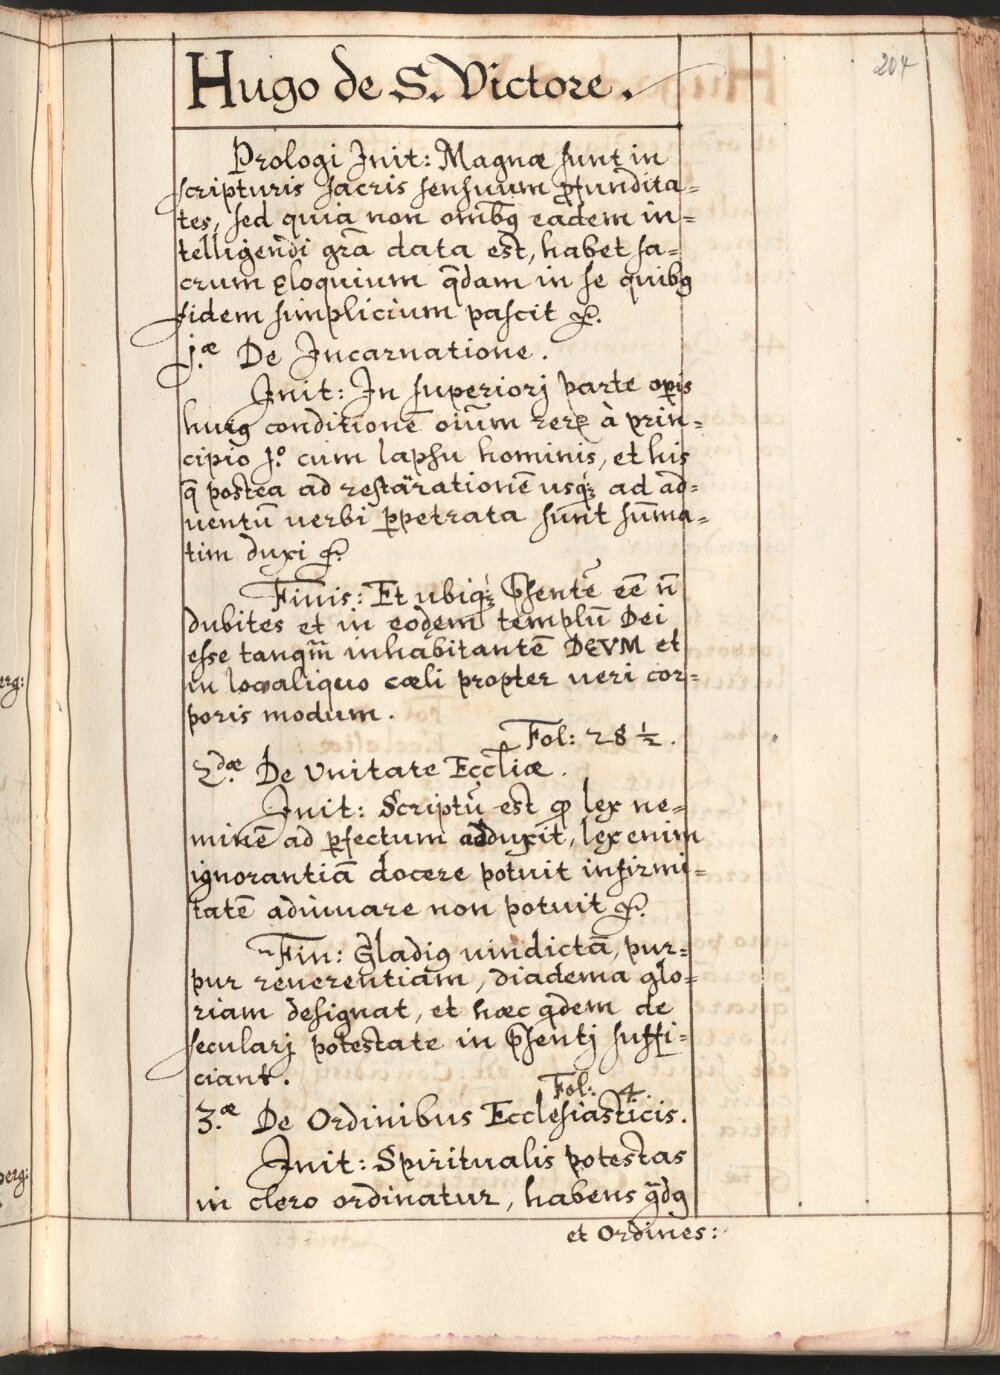 204
Hugo de S. Victore.
Prologi Init: Magnæ sunt in
scripturis sacris sensuum ꝓfundita=
tes, sed quia non omībꝰ eadem in=
telligendi grā data est, habet sa=
crum eloquium q̄dam in se quibꝰ
fidem simplicium pascit &.
j.æ De Incarnatione.
Init: In superiorj parte opis
huiꝰ conditionē oīum rerꝝ à prin=
cipio j.o cum lapsu hominis, et his
q̄ postea ad restaurationē usqꝫ ad ad=
uentū uerbi ꝑpetrata sunt sum̄a=
tim duxi &.
Finis: Et ubiqꝫ p̄sentē eē n̄
dubites et in eodem templū Dei
esse tanqm̄ inhabitantē DEVM et
in loco aliquo cæli propter ueri cor=
poris modum.
Fol: 28 ½.
2.dæ De Unitate Eccl̄iæ.
Init: Scriptū est ꝙ lex ne=
minē ad ꝑfectum adduxit, lex enim
ignorantiā docere potuit infirmi=
tatē adiuuare non potuit &.
Fin: Gladiꝰ uindictā, pur=
pur reuerentiam, diadema glo=
riam designat, et hæc q̄dem de
secularj potestate in p̄sentj suffi=
ciant.
Fol: 4.
3.æ De Ordinibus Ecclesiasticis.
Init: Spiritualis potestas
in clero ordinatur, habens q̄dꝰ
et Ordines:
erg:
perg: